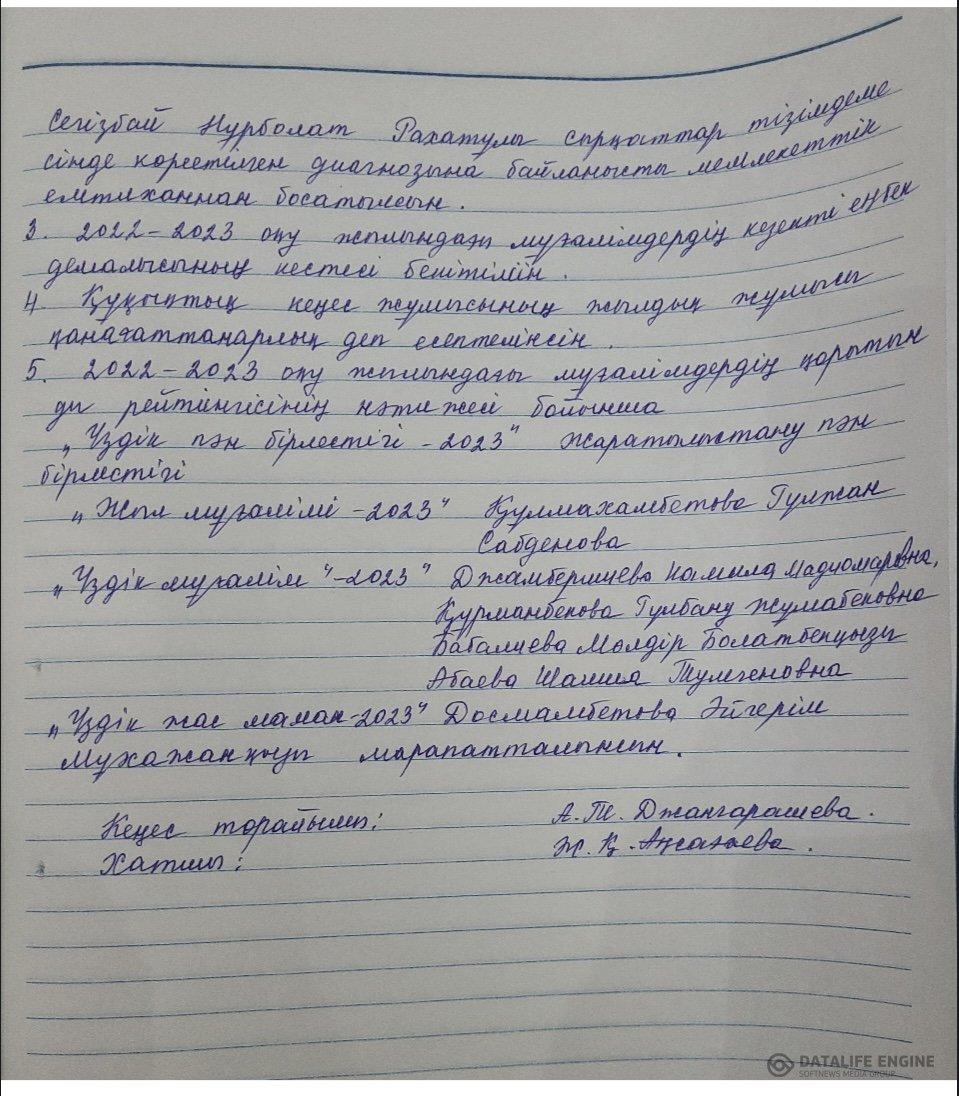 Сегізбай Нұрболат Рахатұлы сырқаттар тізімдеме
сінде көрсетілген диагнозына байланысты мемлекеттік
емтиханнан босатылсын.
3. 2022-2023 оқу жылындағы мұғалімдердің кезекті еңбек
демалысының кестесі бекітілсін.
4. Құқықтық кеңес жұмысының жылдық жұмысы
қанағаттанарлық деп есептелінсін.
5. 2022-2023 оқу жылындағы мұғалімдердің қорытын
ды рейтингісінің нәтижесі бойынша
"Үздік пән бірлестігі - 2023" Жаратылыстану пән
бірлестігі
"Жыл мұғалімі - 2023" Құлмахамбетова Гулжан
Сабденова
"Үздік мұғалім" - 2023" Камила
Құрманбекова Гулбану Жумабековна
Мөлдір Болатбекқызы
Абаева
"Үздік жас маман - 2023" Досмамбетова Әйгерім
Мұхажанқызы марапатталынсын.
Кеңес торайымы: А.Т. Джангарашева.
Хатшы: Ж.Қ.
DATALIFE ENGINE
SOFTNEWS MEDIA GROUP